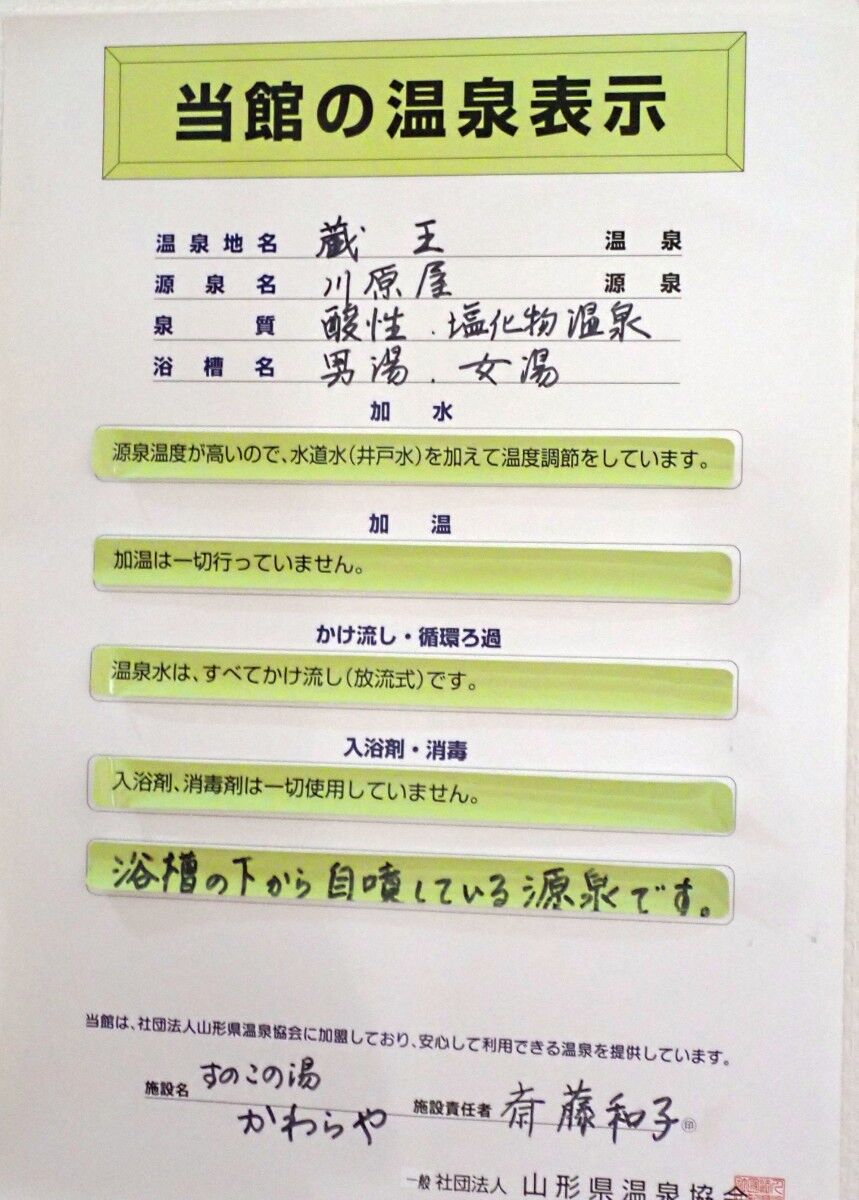 当館の温泉表示
温泉地名 蔵王 温泉
源泉名 川原屋 源泉
泉質 酸性.塩化物温泉
浴槽名 男湯.女湯
加水
源泉温度が高いので、水道水(井戸水)を加えて温度調節をしています。
加温
加温は一切行っていません。
かけ流し・循環ろ過
温泉水は、すべてかけ流し(放流式)です。
入浴剤・消毒
入浴剤、消毒剤は一切使用していません。
浴槽の下から自噴している源泉です。
当館は、社団法人山形県温泉協会に加盟しており、安心して利用できる温泉を提供しています。
施設名 すのこの湯
かわらや 施設責任者 斎藤和子 印
一般社団法人 山形県温泉協会